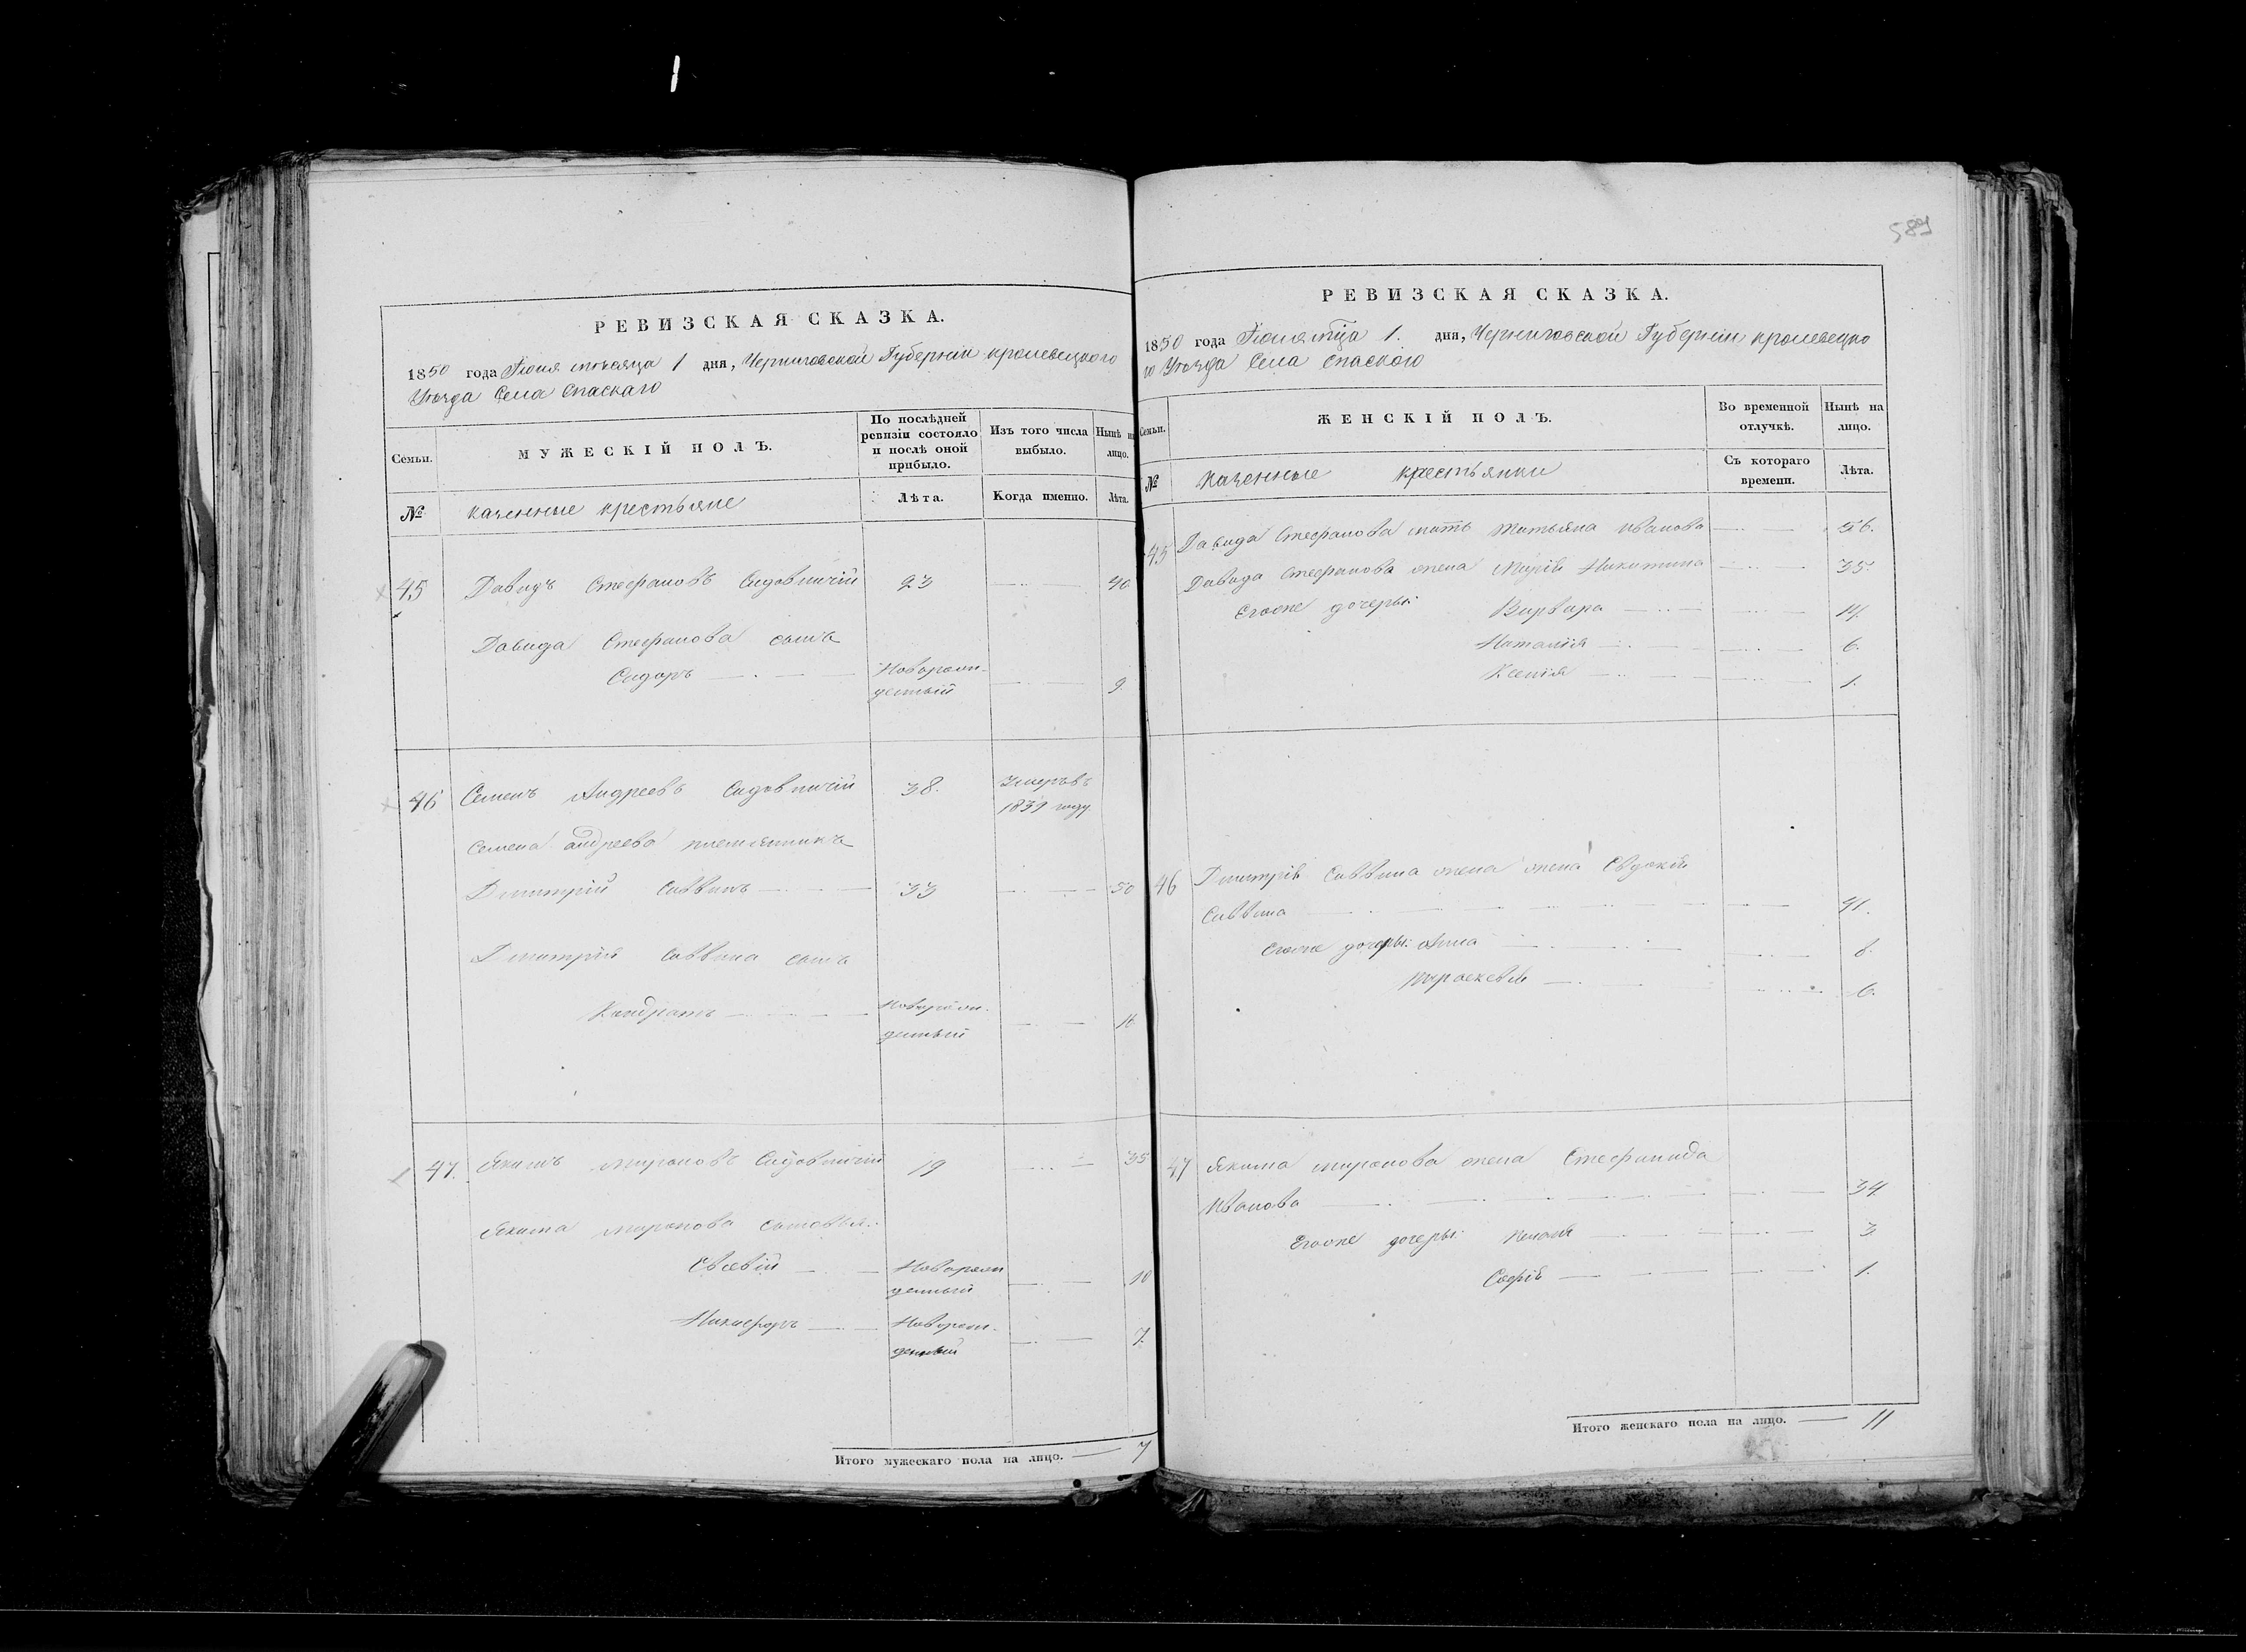 589
РЕВИЗСКАЯ СКАЗКА.
1850 года Июня месяца 1 дня, Черниговской Губерніи Кролевецкого
Уѣзда Села Спаскаго
Семьи.
МУЖЕСКІЙ ПОЛЪ.
По послѣдней ревизіи состояло и послѣ оной прибыло.
Изъ того числа выбыло.
Нынѣ на лицо.
№
казенные крестьяне
Лѣта.
Когда именно.
Лѣта.
45 Давидъ Стефановъ 23 40
Давида Стефанова сынъ
Сидоръ Новорож-
денный 9.
46 Семенъ Андреевъ 38. Умеръ въ
1839 году
Семена Андреева племянникъ
Дмитрій Саввинъ 33 50
Дмитрія Саввина сынъ
Кондратъ Новорож-
денный 16
47. Якимъ Мироновъ 19 35
Якима Миронова сыновья:
Евсевій Новорож
денный 10
Никифоръ Новорож-
денный 7.
Итого мужескаго пола на лицо. 7
РЕВИЗСКАЯ СКАЗКА.
1850 года Июня мца 1. дня, Черниговской Губерніи Кролевецко
го Уѣзда Села Спаского
Семьи.
ЖЕНСКІЙ ПОЛЪ.
Во временной отлучкѣ.
Нынѣ на лицо.
№
казенные крестьянки
Съ котораго времени.
Лѣта.
45 Давида Стефанова мать Татьяна Иванова 56.
Давида Стефанова жена Марія Никитина 35.
Егоже дочеры: Варвара 14.
Наталія 6.
Ксенія 1.
46 Дмитрія Саввина жена жена Евдокія
Саввина 41.
Егоже дочеры: Анна 8.
Параскевія 6.
47 Якима Миронова жена Стефанида
Иванова 34.
Егоже дочеры: 3
Софія 1.
Итого женскаго пола на лицо. 11